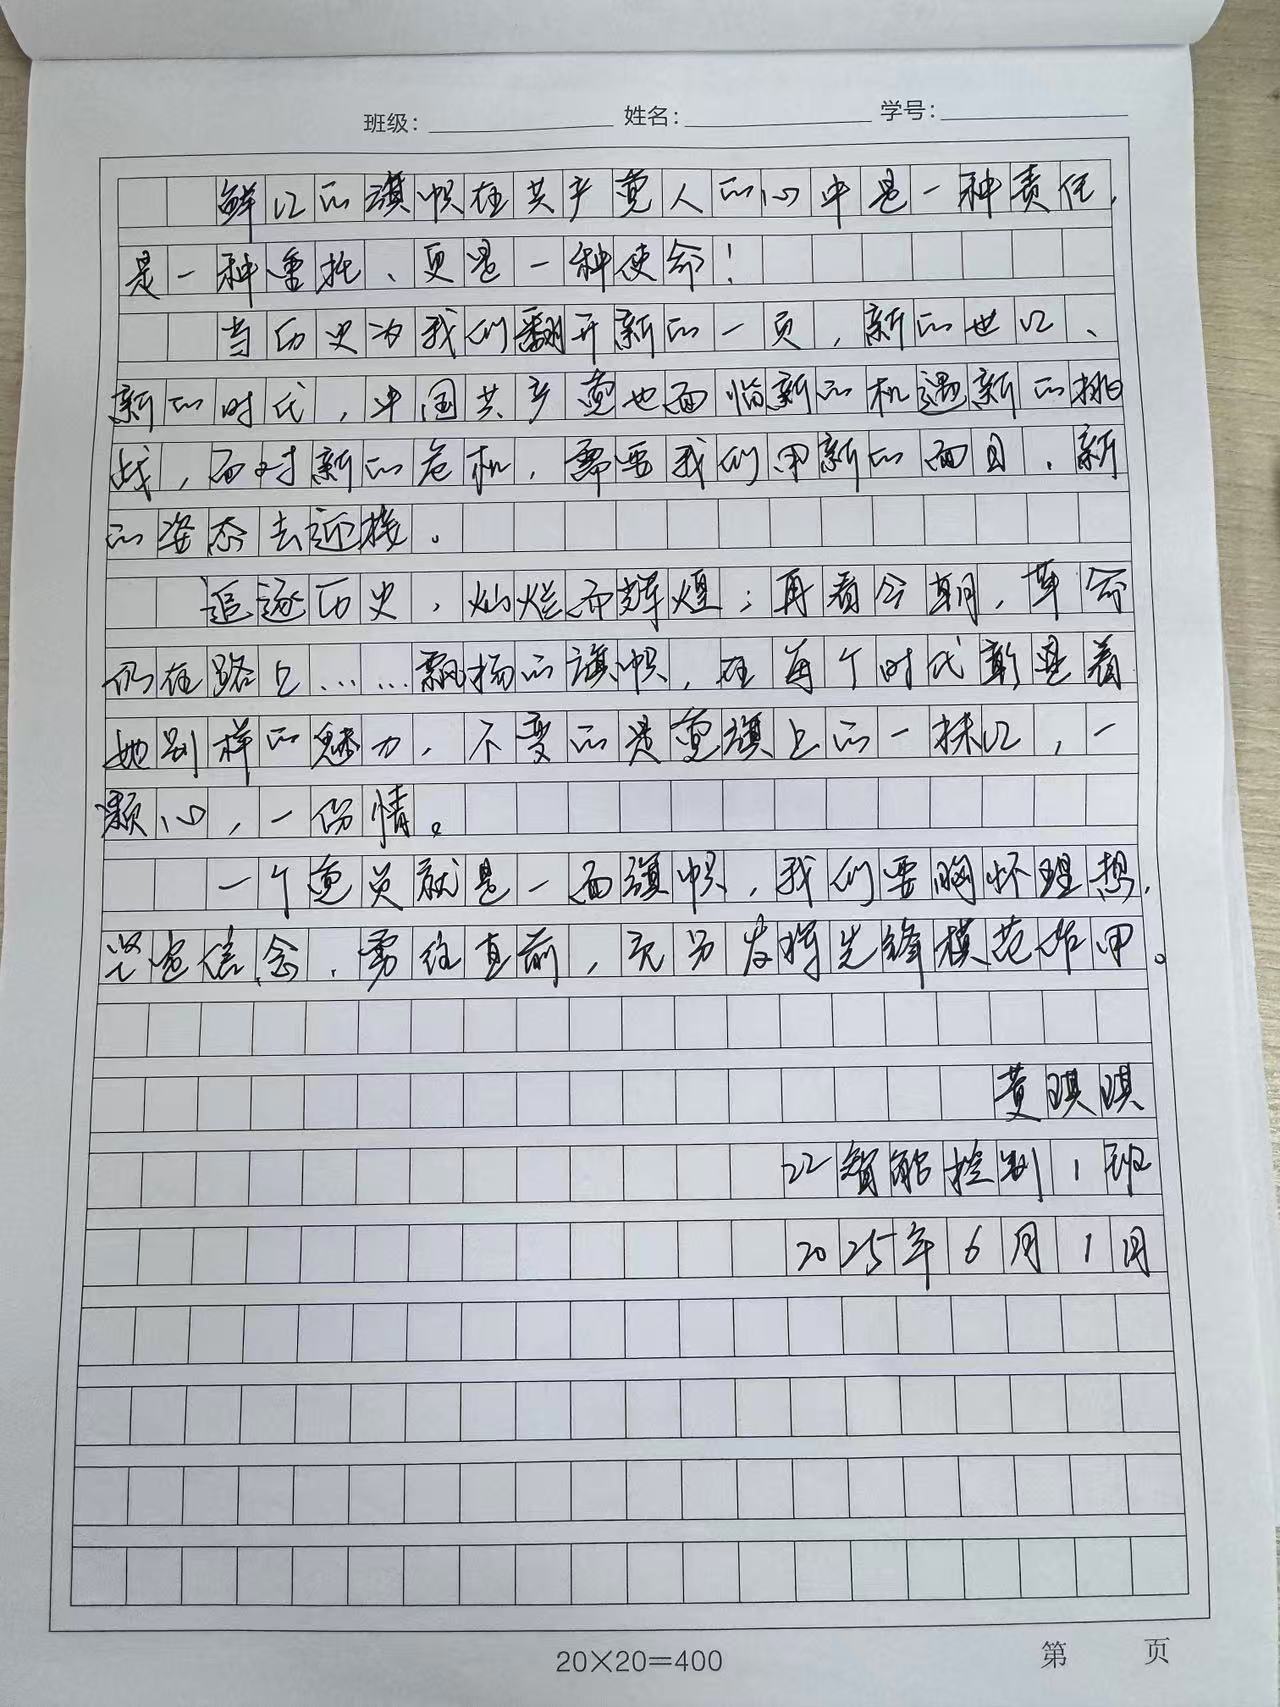 班级： 姓名： 学号：
鲜红的旗帜在共产党人的心中是一种责任，
是一种重托、更是一种使命！
当历史为我们翻开新的一页，新的世纪、
新的时代，中国共产党也面临新的机遇新的挑
战，面对新的危机，需要我们用新的面目、新
的姿态去迎接。
追逐历史，灿烂而辉煌；再看今朝，革命
仍在路上……飘扬的旗帜，在每个时代彰显着
她别样的魅力，不变的是党旗上的一抹红，一
颗心，一份情。
一个党员就是一面旗帜，我们要胸怀理想，
坚定信念，勇往直前，充分发挥先锋模范作用。
黄琪琪
22智能控制1班
2025年6月1日
20×20=400
第 页